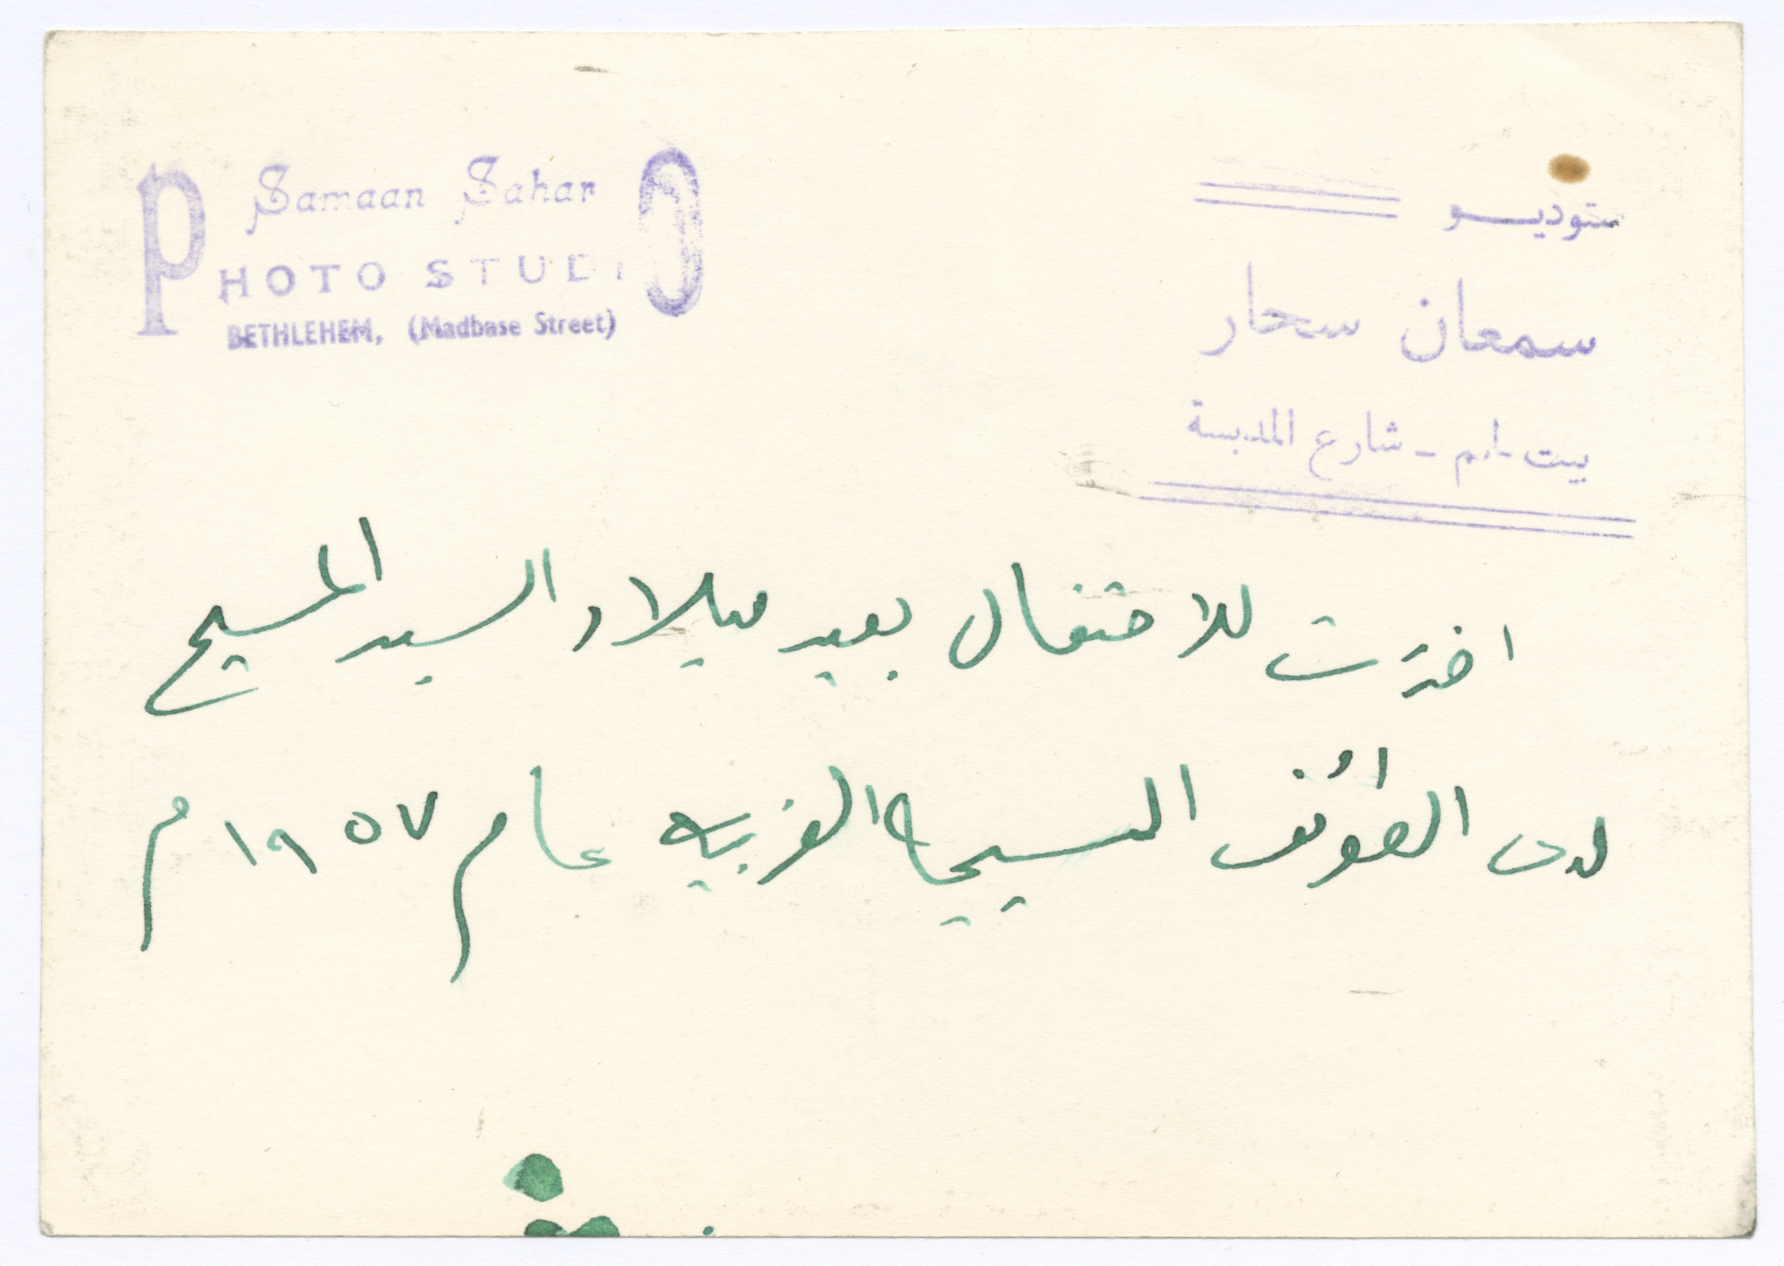 Samaan Sahar
PHOTO STUDIO
BETHLEHEM, (Madbase Street)
ستوديـــو
سمعان سحار
بيت لحم - شارع المدبسة
اخذت للاحتفال بعيد ميلاد السيد المسيح
لدى الطوائف المسيحية الغربية عام ١٩٥٧ م